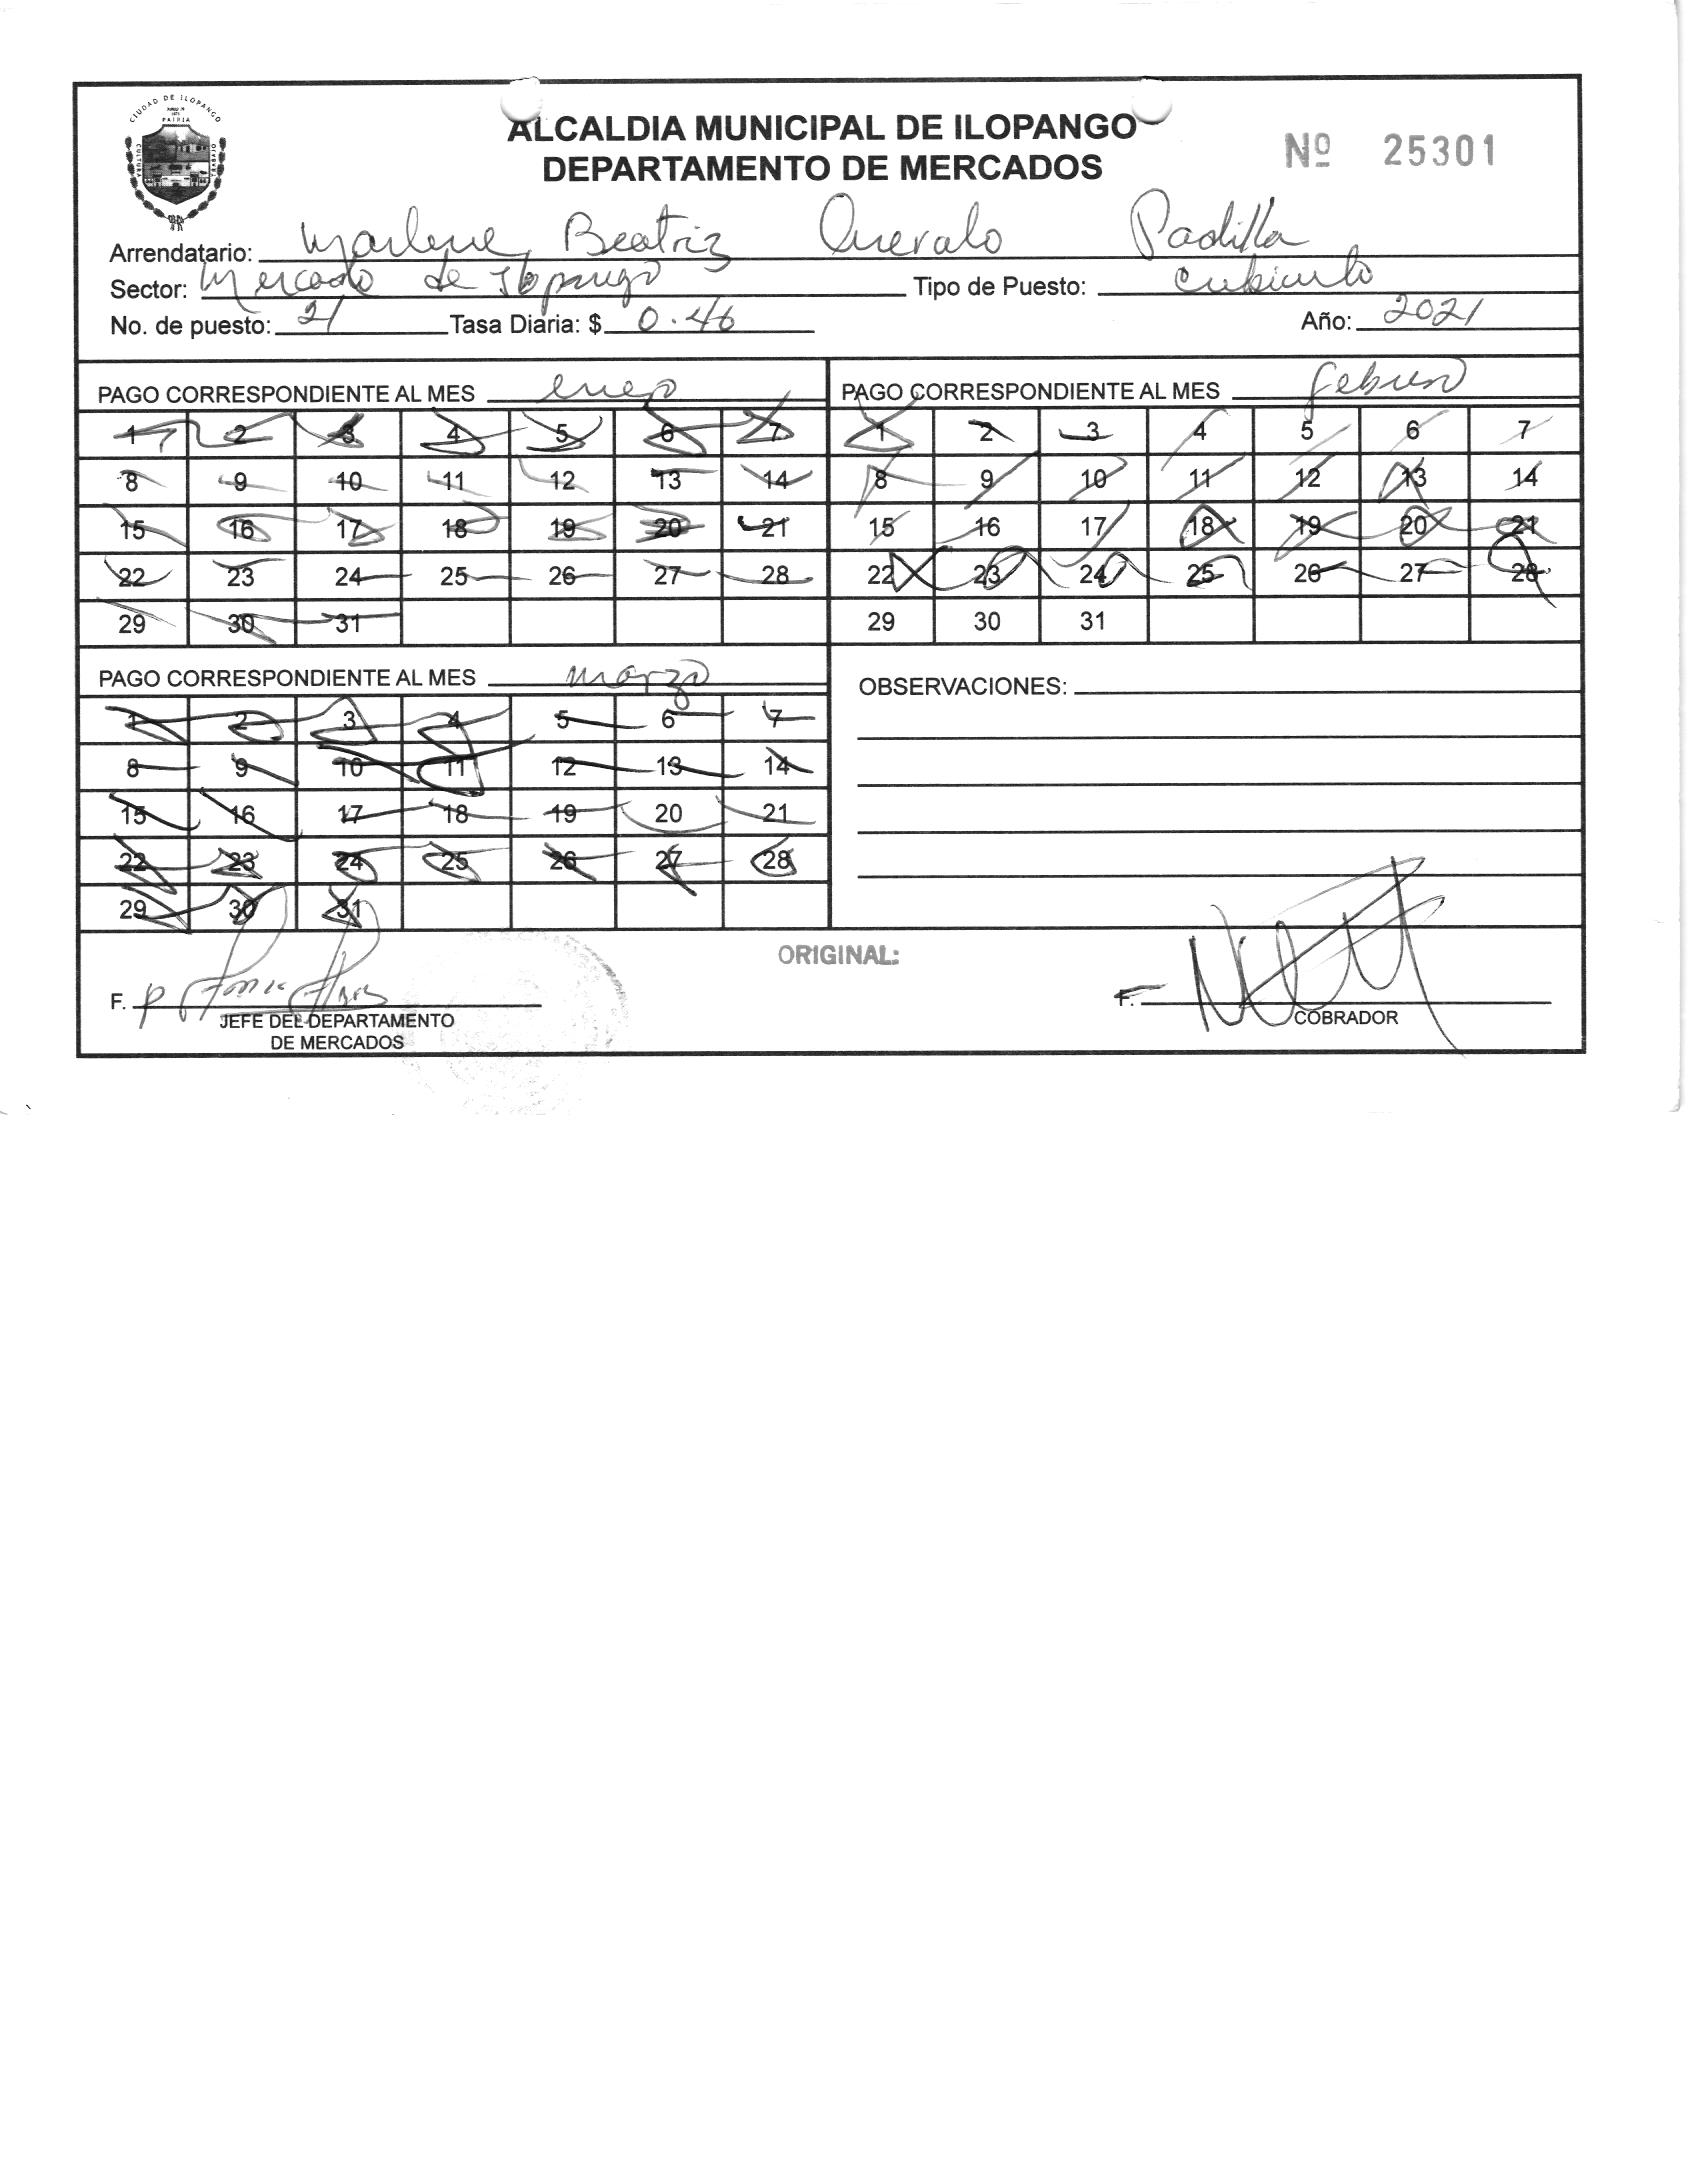 CIUDAD DE ILOPANGO
PATRIA
CULTURA
ALCALDIA MUNICIPAL DE ILOPANGO
DEPARTAMENTO DE MERCADOS
Nº 25301
Arrendatario: Marlene Beatriz Padilla
Sector: Mercado de Ilopango Tipo de Puesto: Cubiculo
No. de puesto: 21 Tasa Diaria: $ 0.46 Año: 2021
PAGO CORRESPONDIENTE AL MES enero
1 2 3 4 5 6 7
8 9 10 11 12 13 14
15 16 17 18 19 20 21
22 23 24 25 26 27 28
29 30 31
PAGO CORRESPONDIENTE AL MES febrero
1 2 3 4 5 6 7
8 9 10 11 12 13 14
15 16 17 18 19 20 21
22 23 24 25 26 27 28
29 30 31
PAGO CORRESPONDIENTE AL MES marzo
1 2 3 4 5 6 7
8 9 10 11 12 13 14
15 16 17 18 19 20 21
22 23 24 25 26 27 28
29 30 31
OBSERVACIONES:
ORIGINAL:
F.
JEFE DEL DEPARTAMENTO
DE MERCADOS
F.
COBRADOR